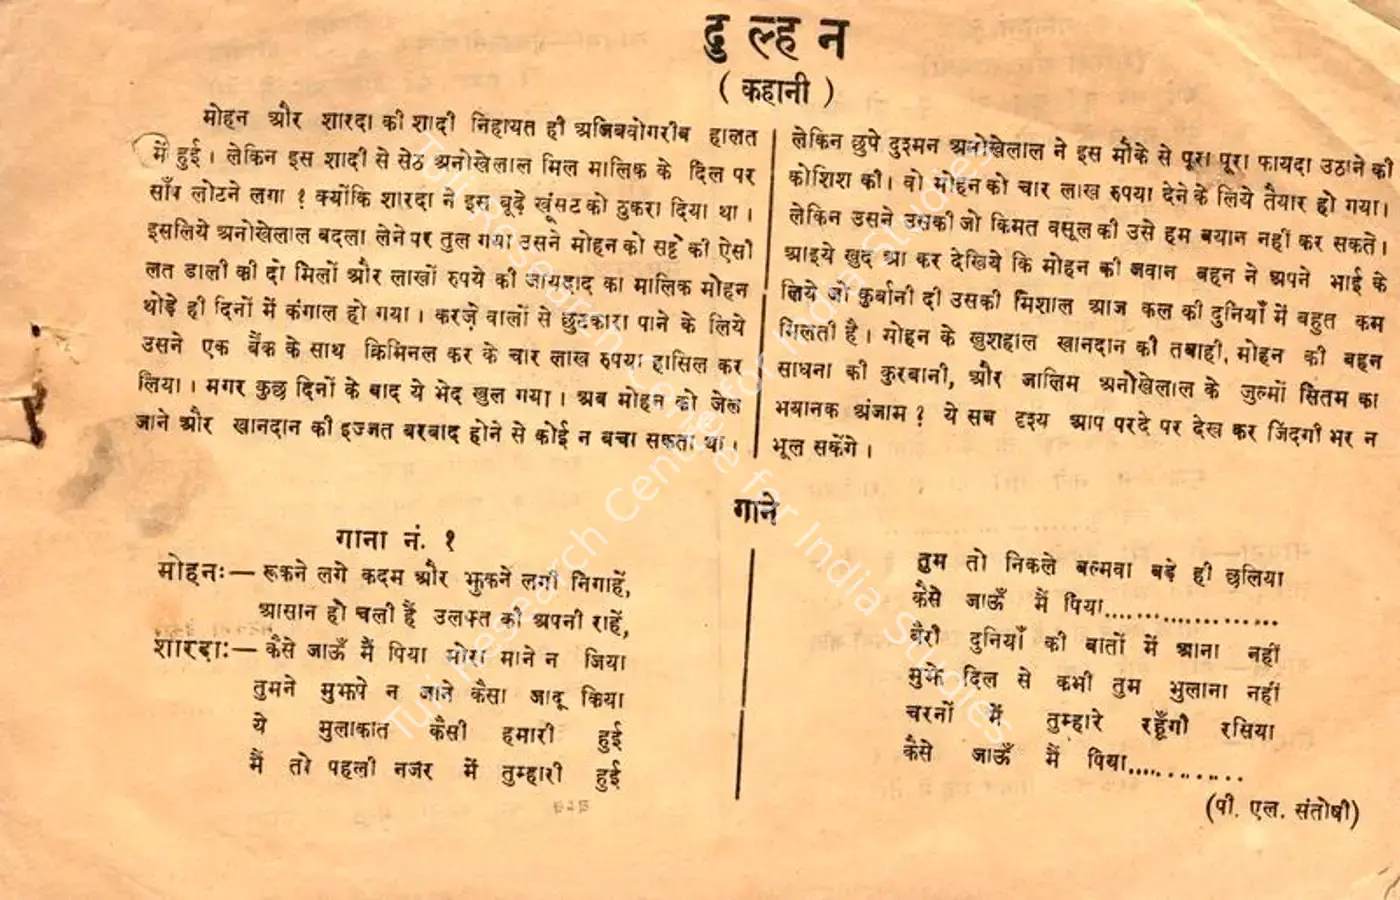 दुल्हन
( कहानी )
मोहन और शारदा की शादी निहायत ही अजिबवोगरीब हालत
में हुई । लेकिन इस शादी से सेठ अनोखेलाल मिल मालिक के दिल पर
साँप लोटने लगा ? क्योंकि शारदा ने इस बूढ़े खूंसट को ठुकरा दिया था ।
इसलिये अनोखेलाल बदला लेने पर तुल गया उसने मोहन को सट्टे की ऐसी
लत डाली की दो मिलों और लाखों रुपये की जायदाद का मालिक मोहन
थोड़े ही दिनों में कंगाल हो गया । करज़े वालों से छुटकारा पाने के लिये
उसने एक बैंक के साथ क्रिमिनल कर के चार लाख रुपया हासिल कर
लिया । मगर कुछ दिनों के बाद ये भेद खुल गया । अब मोहन को जेल
जाने और खानदान की इज्जत बरबाद होने से कोई न बचा सकता था ।
लेकिन छुपे दुश्मन अनोखेलाल ने इस मौके से पूरा पूरा फायदा उठाने की
कोशिश की । वो मोहन को चार लाख रुपया देने के लिये तैयार हो गया ।
लेकिन उसने उसकी जो किमत वसूल की उसे हम बयान नहीं कर सकते ।
आइये खुद आ कर देखिये कि मोहन की जवान बहन ने अपने भाई के
लिये जो कुर्बानी दी उसकी मिशाल आज कल की दुनियाँ में बहुत कम
मिलती है । मोहन के खुशहाल खानदान की तबाही, मोहन की बहन
साधना की कुरबानी, और जालिम अनोखेलाल के जुल्मों सितम का
भयानक अंजाम ? ये सब दृश्य आप परदे पर देख कर जिंदगी भर न
भूल सकेंगे ।
गाने
गाना नं. १
मोहनः— रूकने लगे कदम और झुकने लगी निगाहें,
आसान हो चली हैं उलफ्त की अपनी राहें,
शारदाः— कैसे जाऊँ मैं पिया मोरा माने न जिया
तुमने मुझपे न जाने कैसा जादू किया
ये मुलाकात कैसी हमारी हुई
मैं तो पहली नजर में तुम्हारी हुई
तुम तो निकले बल्मवा बड़े ही छलिया
कैसे जाऊँ मैं पिया....................
बैरी दुनियाँ की बातों में आना नहीं
मुझे दिल से कभी तुम भुलाना नहीं
चरनों में तुम्हारे रहूँगी रसिया
कैसे जाऊँ मैं पिया..............
(पी. एल. संतोषी)
Tuli Research Centre for India Studies
Tuli Research Centre for India Studies